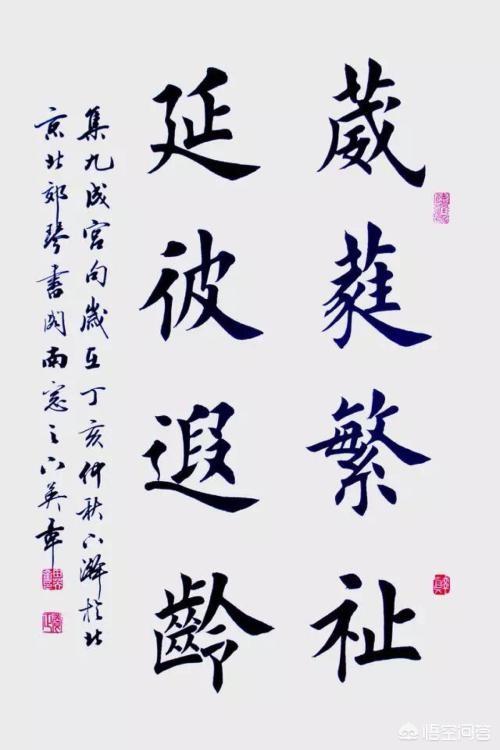 葳蕤繁祉
延彼遐齡
集九成宮句歲在丁亥仲秋下澣於北
京北郊琴書閣南窓之下英章
悟空问答